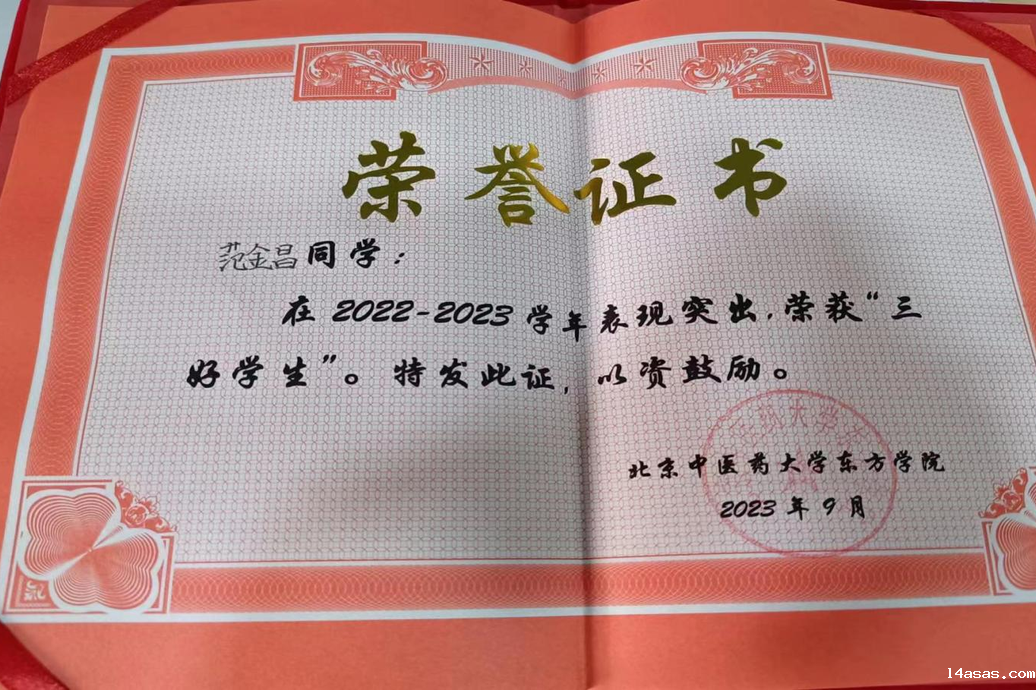 荣誉证书
范金昌同学：
在2022-2023学年表现突出，荣获“三
好学生”。特发此证，以资鼓励。
北京中医药大学东方学院
2023年9月
14asas.com